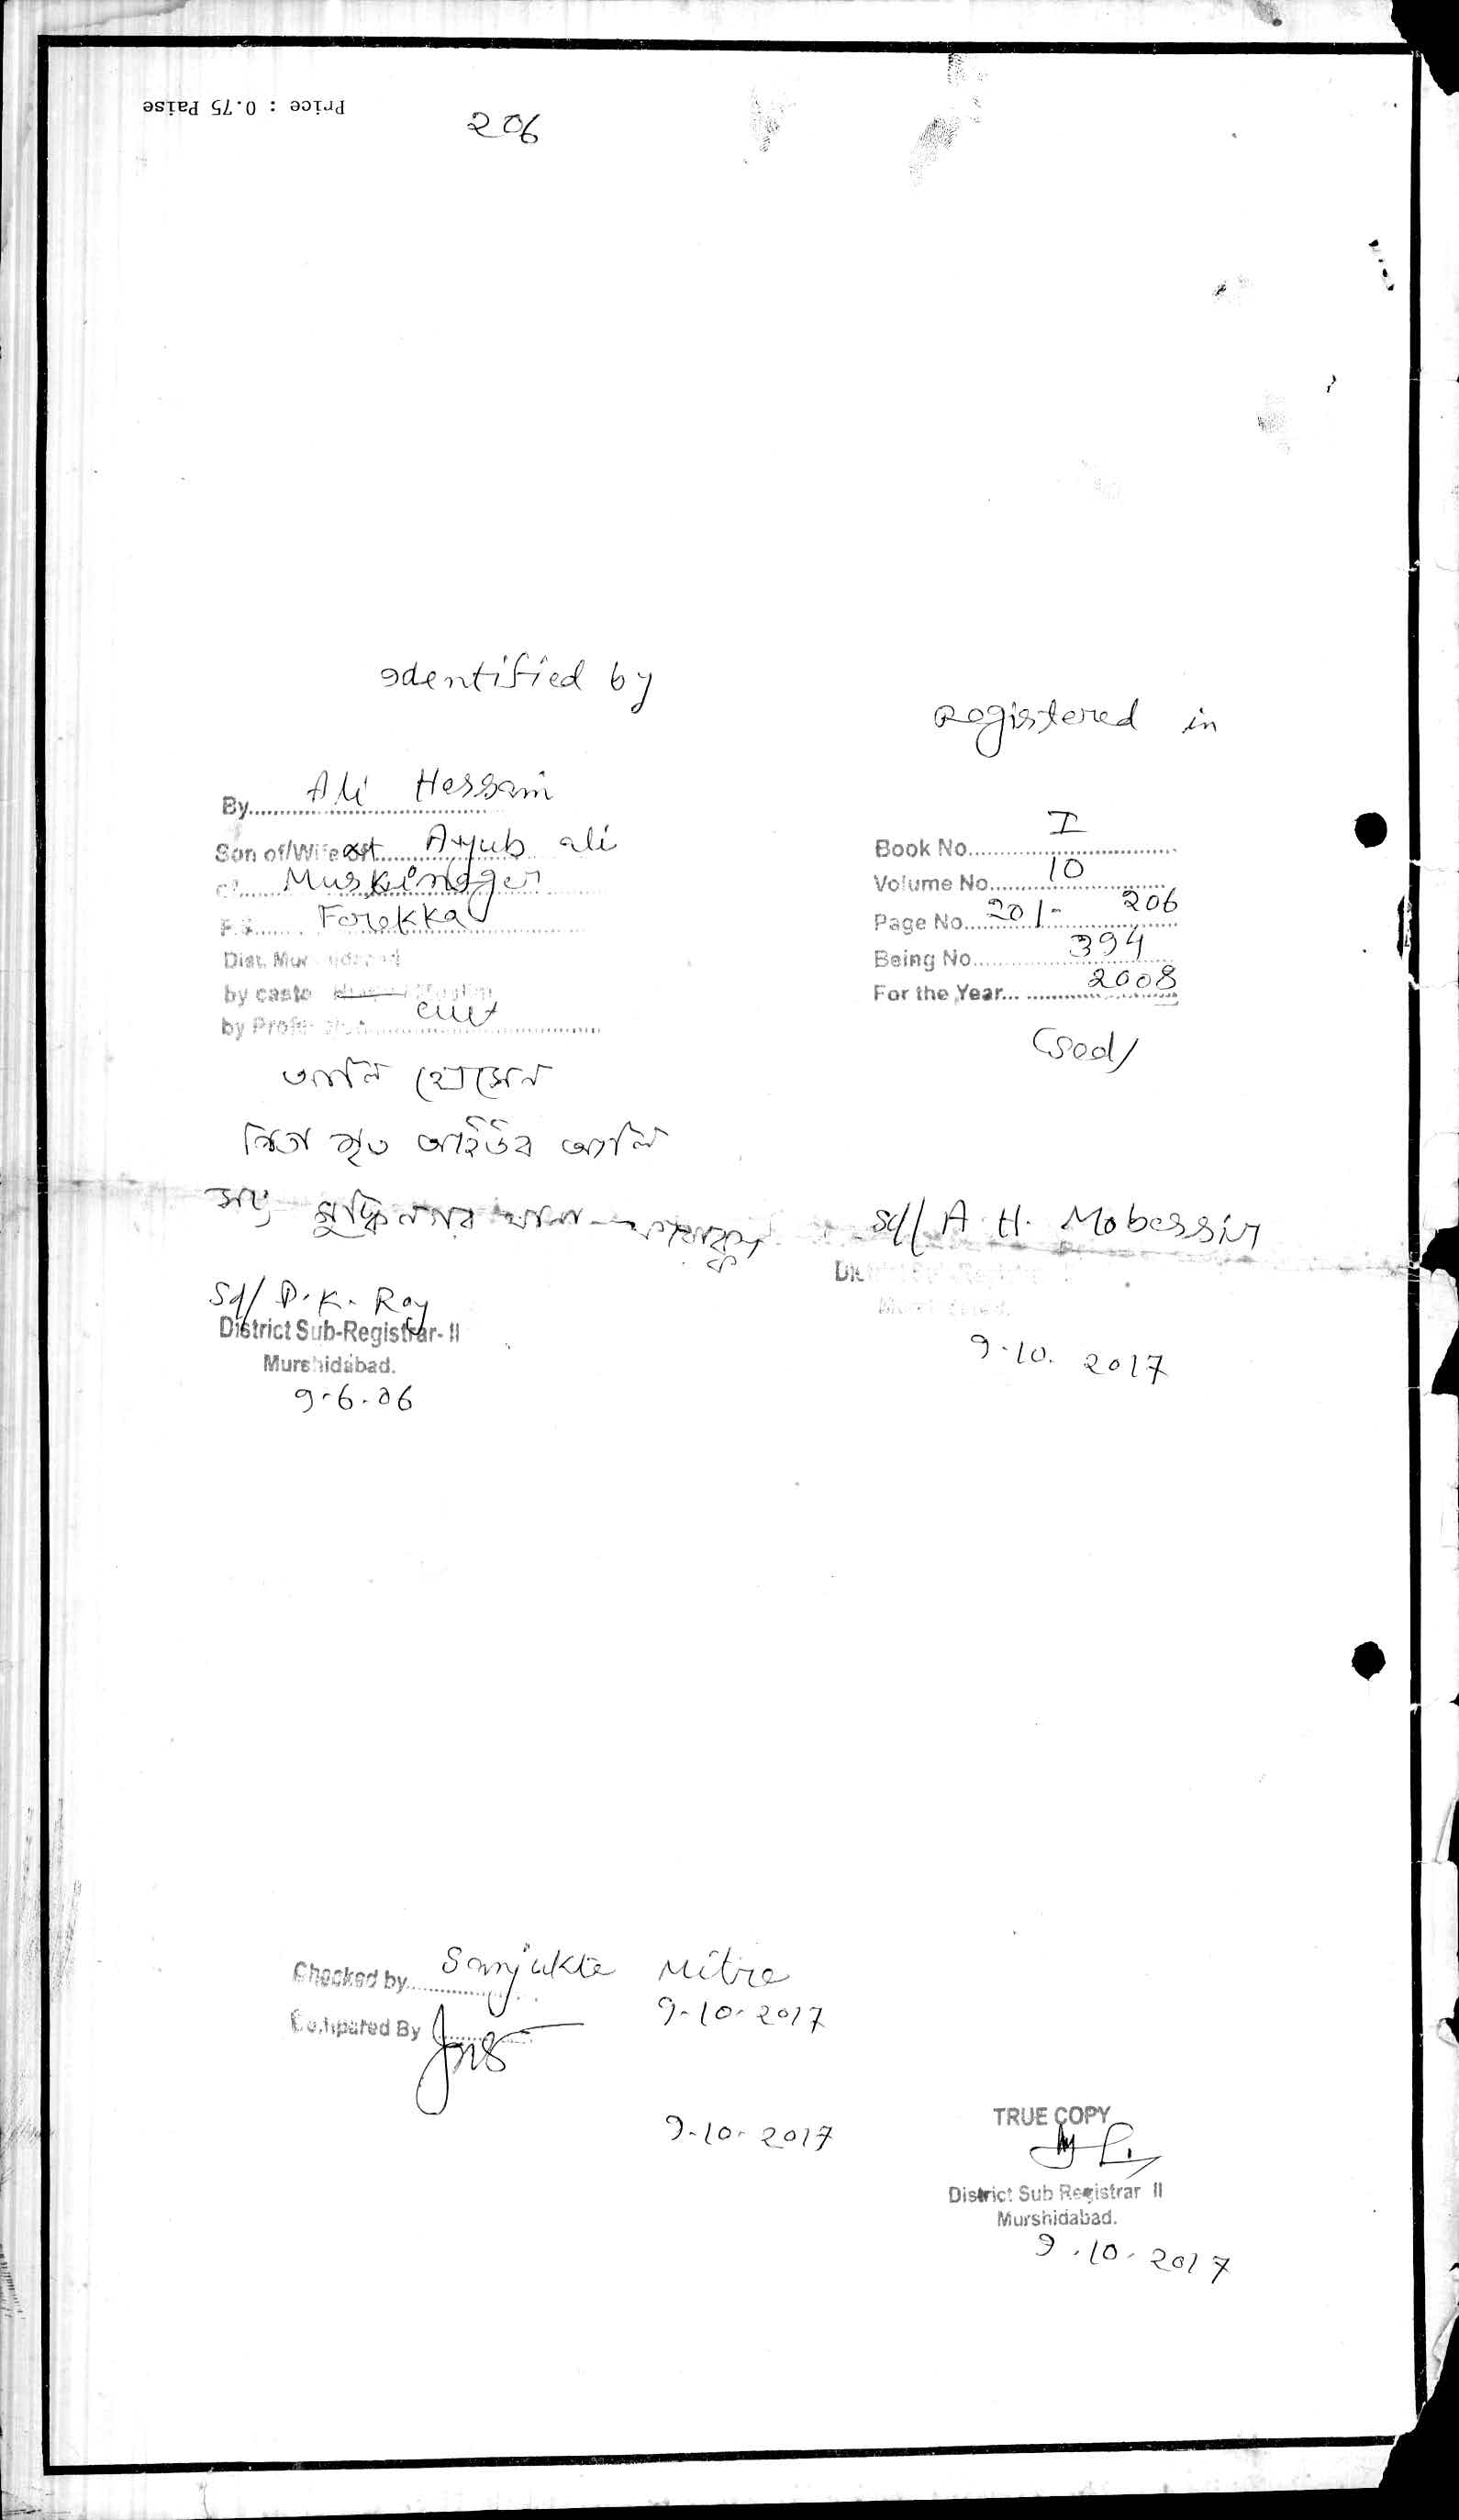 Price : 0.75 Paise
206
Identified by
By Ali Hossain
Son of/Wife of Ayub ali
of Muskinager
P.S. Forokka
Dist. Murshidabad
by caste Muslim
by Profession
আলি হোসেন
পিতা মৃত আইউব আলি
সাং মুস্কিনগর থানা- ফরাক্কা
Sd/ D. K. Ray
District Sub-Registrar- II
Murshidabad.
9-6-06
Registered in
Book No. I
Volume No. 10
Page No. 201- 206
Being No. 394
For the Year 2008
Sd/ A. H. Mobassir
9.10.2017
Checked by Sanjukta Mitra
9-10-2017
Compared By
9-10-2017
TRUE COPY
District Sub Registrar II
Murshidabad.
9.10.2017